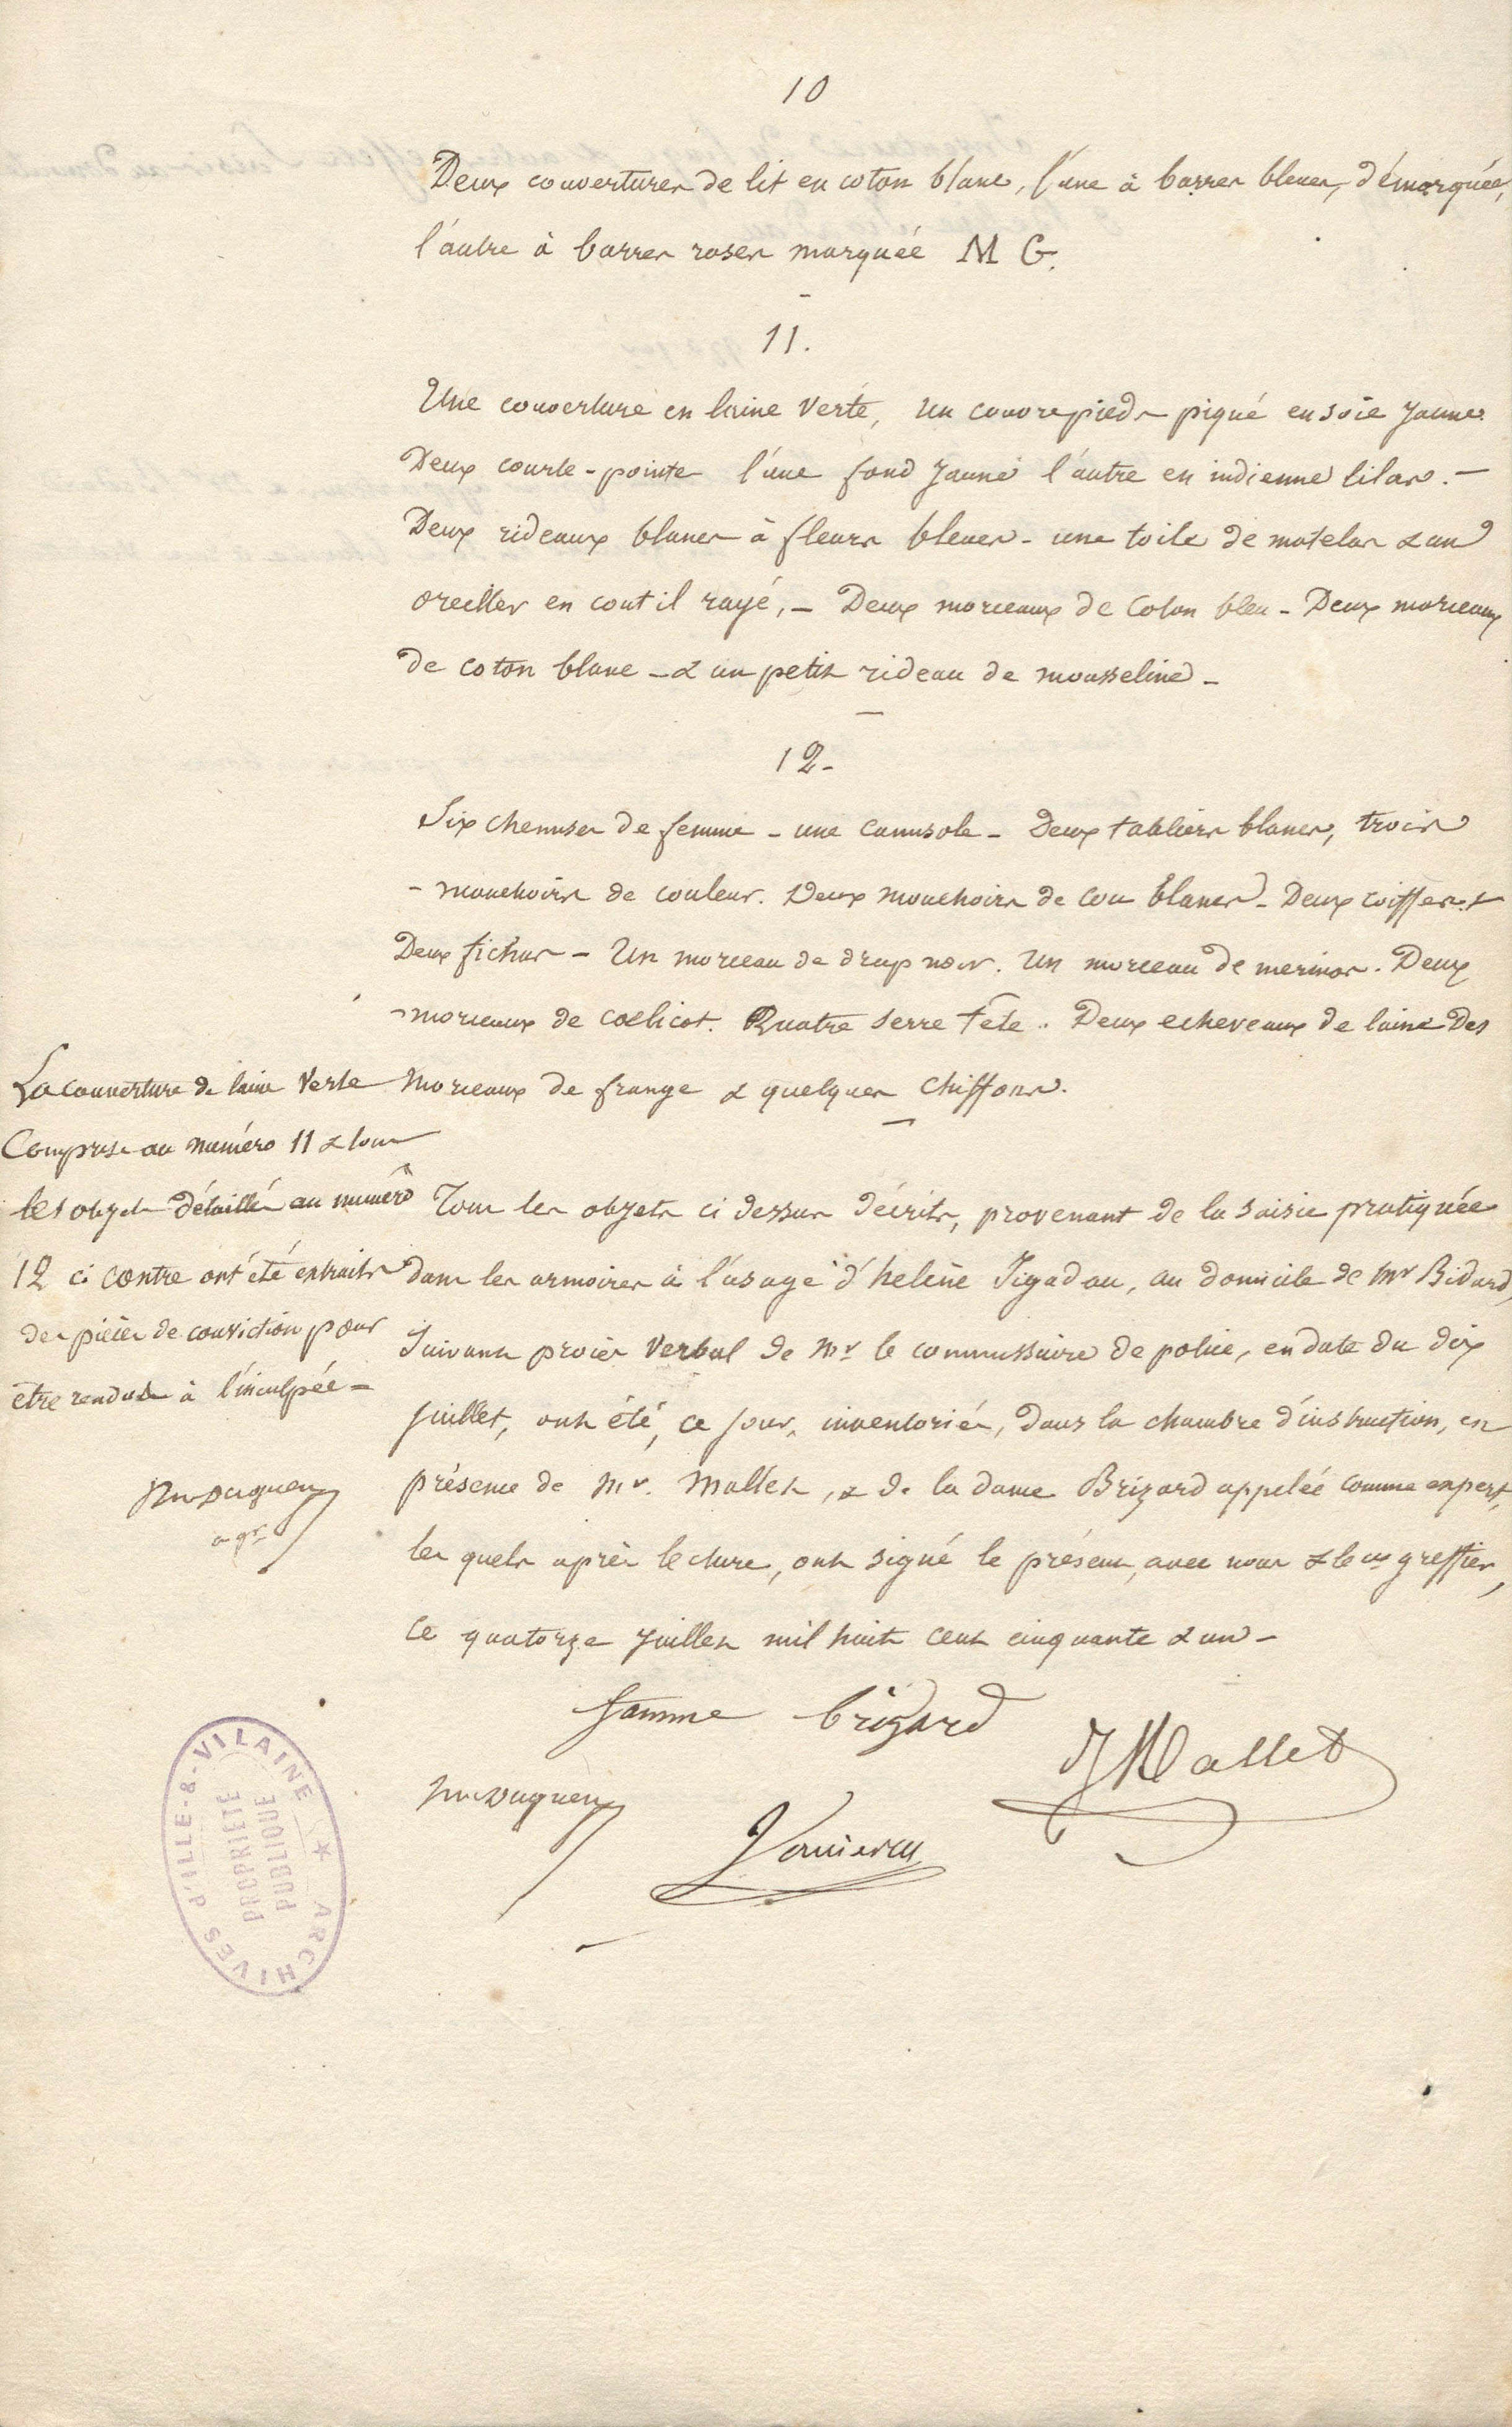 10
Deux couvertures de lit en coton blanc, l'une à barres bleues, démarquée,
l'autre à barres roses marquée M G.
11.
Une couverture en laine verte, un couvrepieds piqué en soie jaune
Deux courte-pointe l'une fond jaune l'autre en indienne lilas. -
Deux rideaux blancs à fleurs bleues - une toile de matelas & un
oreiller en coutil rayé, - Deux morceaux de coton bleu - Deux morceaux
de coton blanc - & un petit rideau de mousseline -
12 -
Six chemises de femme - une camisole - Deux tabliers blancs, trois
- mouchoirs de couleur. Deux mouchoirs de cou blancs - Deux coiffes &
Deux fichus - Un morceau de drap noir. Un morceau de merinos. Deux
morceaux de calicot. Quatre serre tête. Deux echeveaux de laine Des
morceaux de frange & quelques chiffons.
La couverture de laine verte
Comprise au numéro 11 & tous
les objets détaillés au numéro
12 ci contre ont été extraits
des pièces de conviction pour
être rendus à l'inculpée -
Tous les objets ci dessus décrits, provenant de la saisie pratiquée
dans les armoires à l'usage d'helène Jégadau, au domicile de Mr Bidard,
Suivant procès verbal de Mr le commissaire de police, en date du dix
juillet, ont été, ce jour, inventoriés, dans la chambre d'instruction, en
présence de Mr. Mallet, & de la dame Brizard appelée comme expert,
les quels après lecture, ont signé le présent, avec nous & le cis greffier,
ce quatorze juillet mil huit cent cinquante & un -
famme brizard
JMallet
ARCHIVES d'ILLE-&-VILAINE
PROPRIÉTÉ
PUBLIQUE